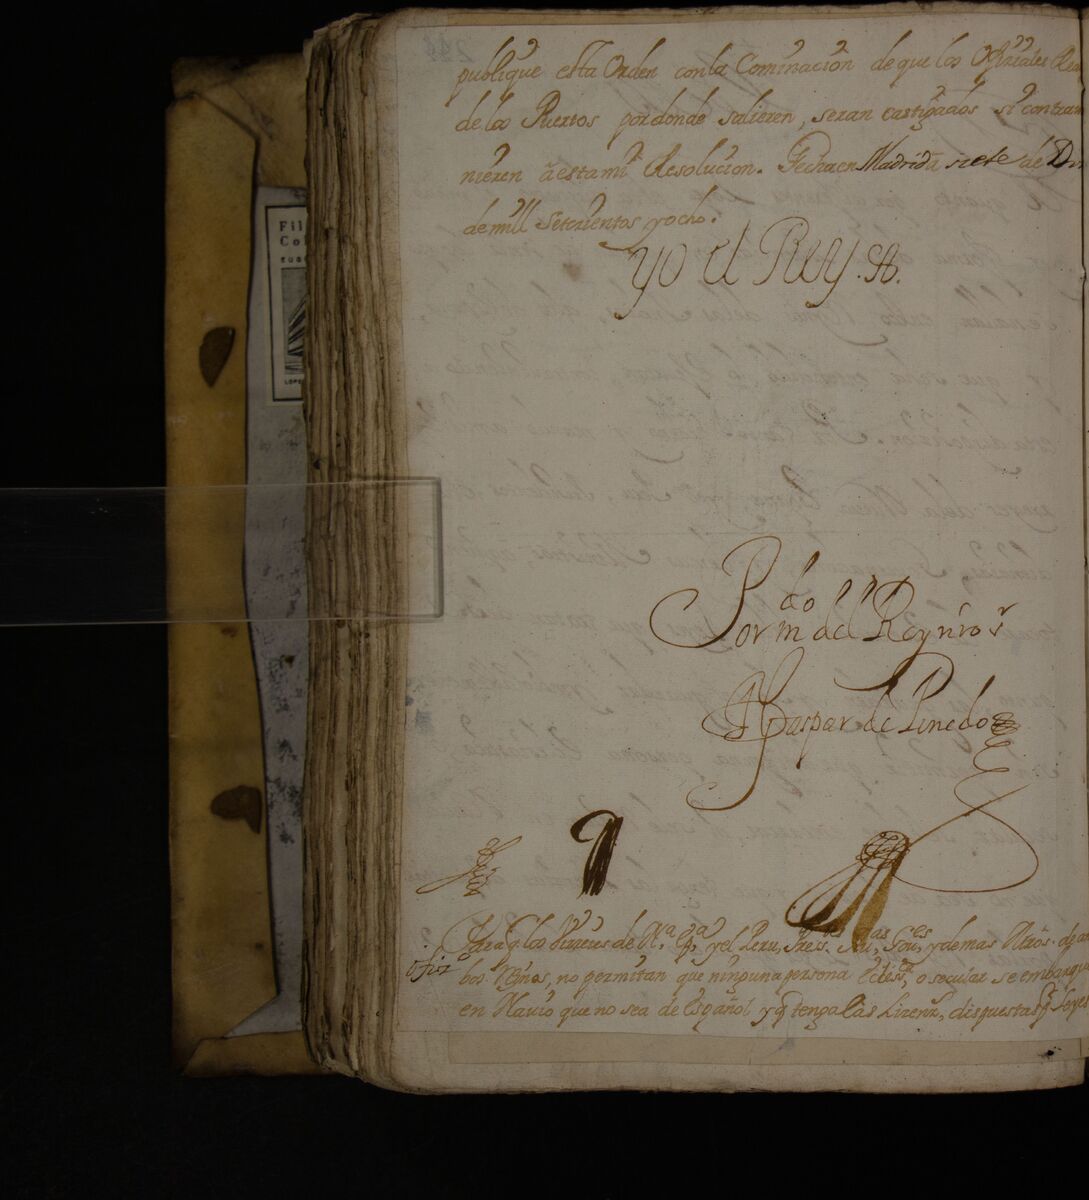 publique esta Orden con la Cominacion de que los Ofiziales
de los Puertos por donde salieren, seran castigados si contrau
nieren â esta mi Resolucion. Fecha en Madrid â siete de
de mill Setezientos y ocho.
Yo el Rey
Por mdo del Rey nro sr
Gaspar de Pinedo
Para q los Virreyes de Na Espa y el Peru, Press. Audas Goues, y demas Mros. de am
bos Rynos, no permitan que ninguna persona Ecclesca, o secular se embarque
en Nauio que no sea de Español y q tenga las Lizenzs, dispuestas pr Leyes
ofizo
Fil
Co
LOPE